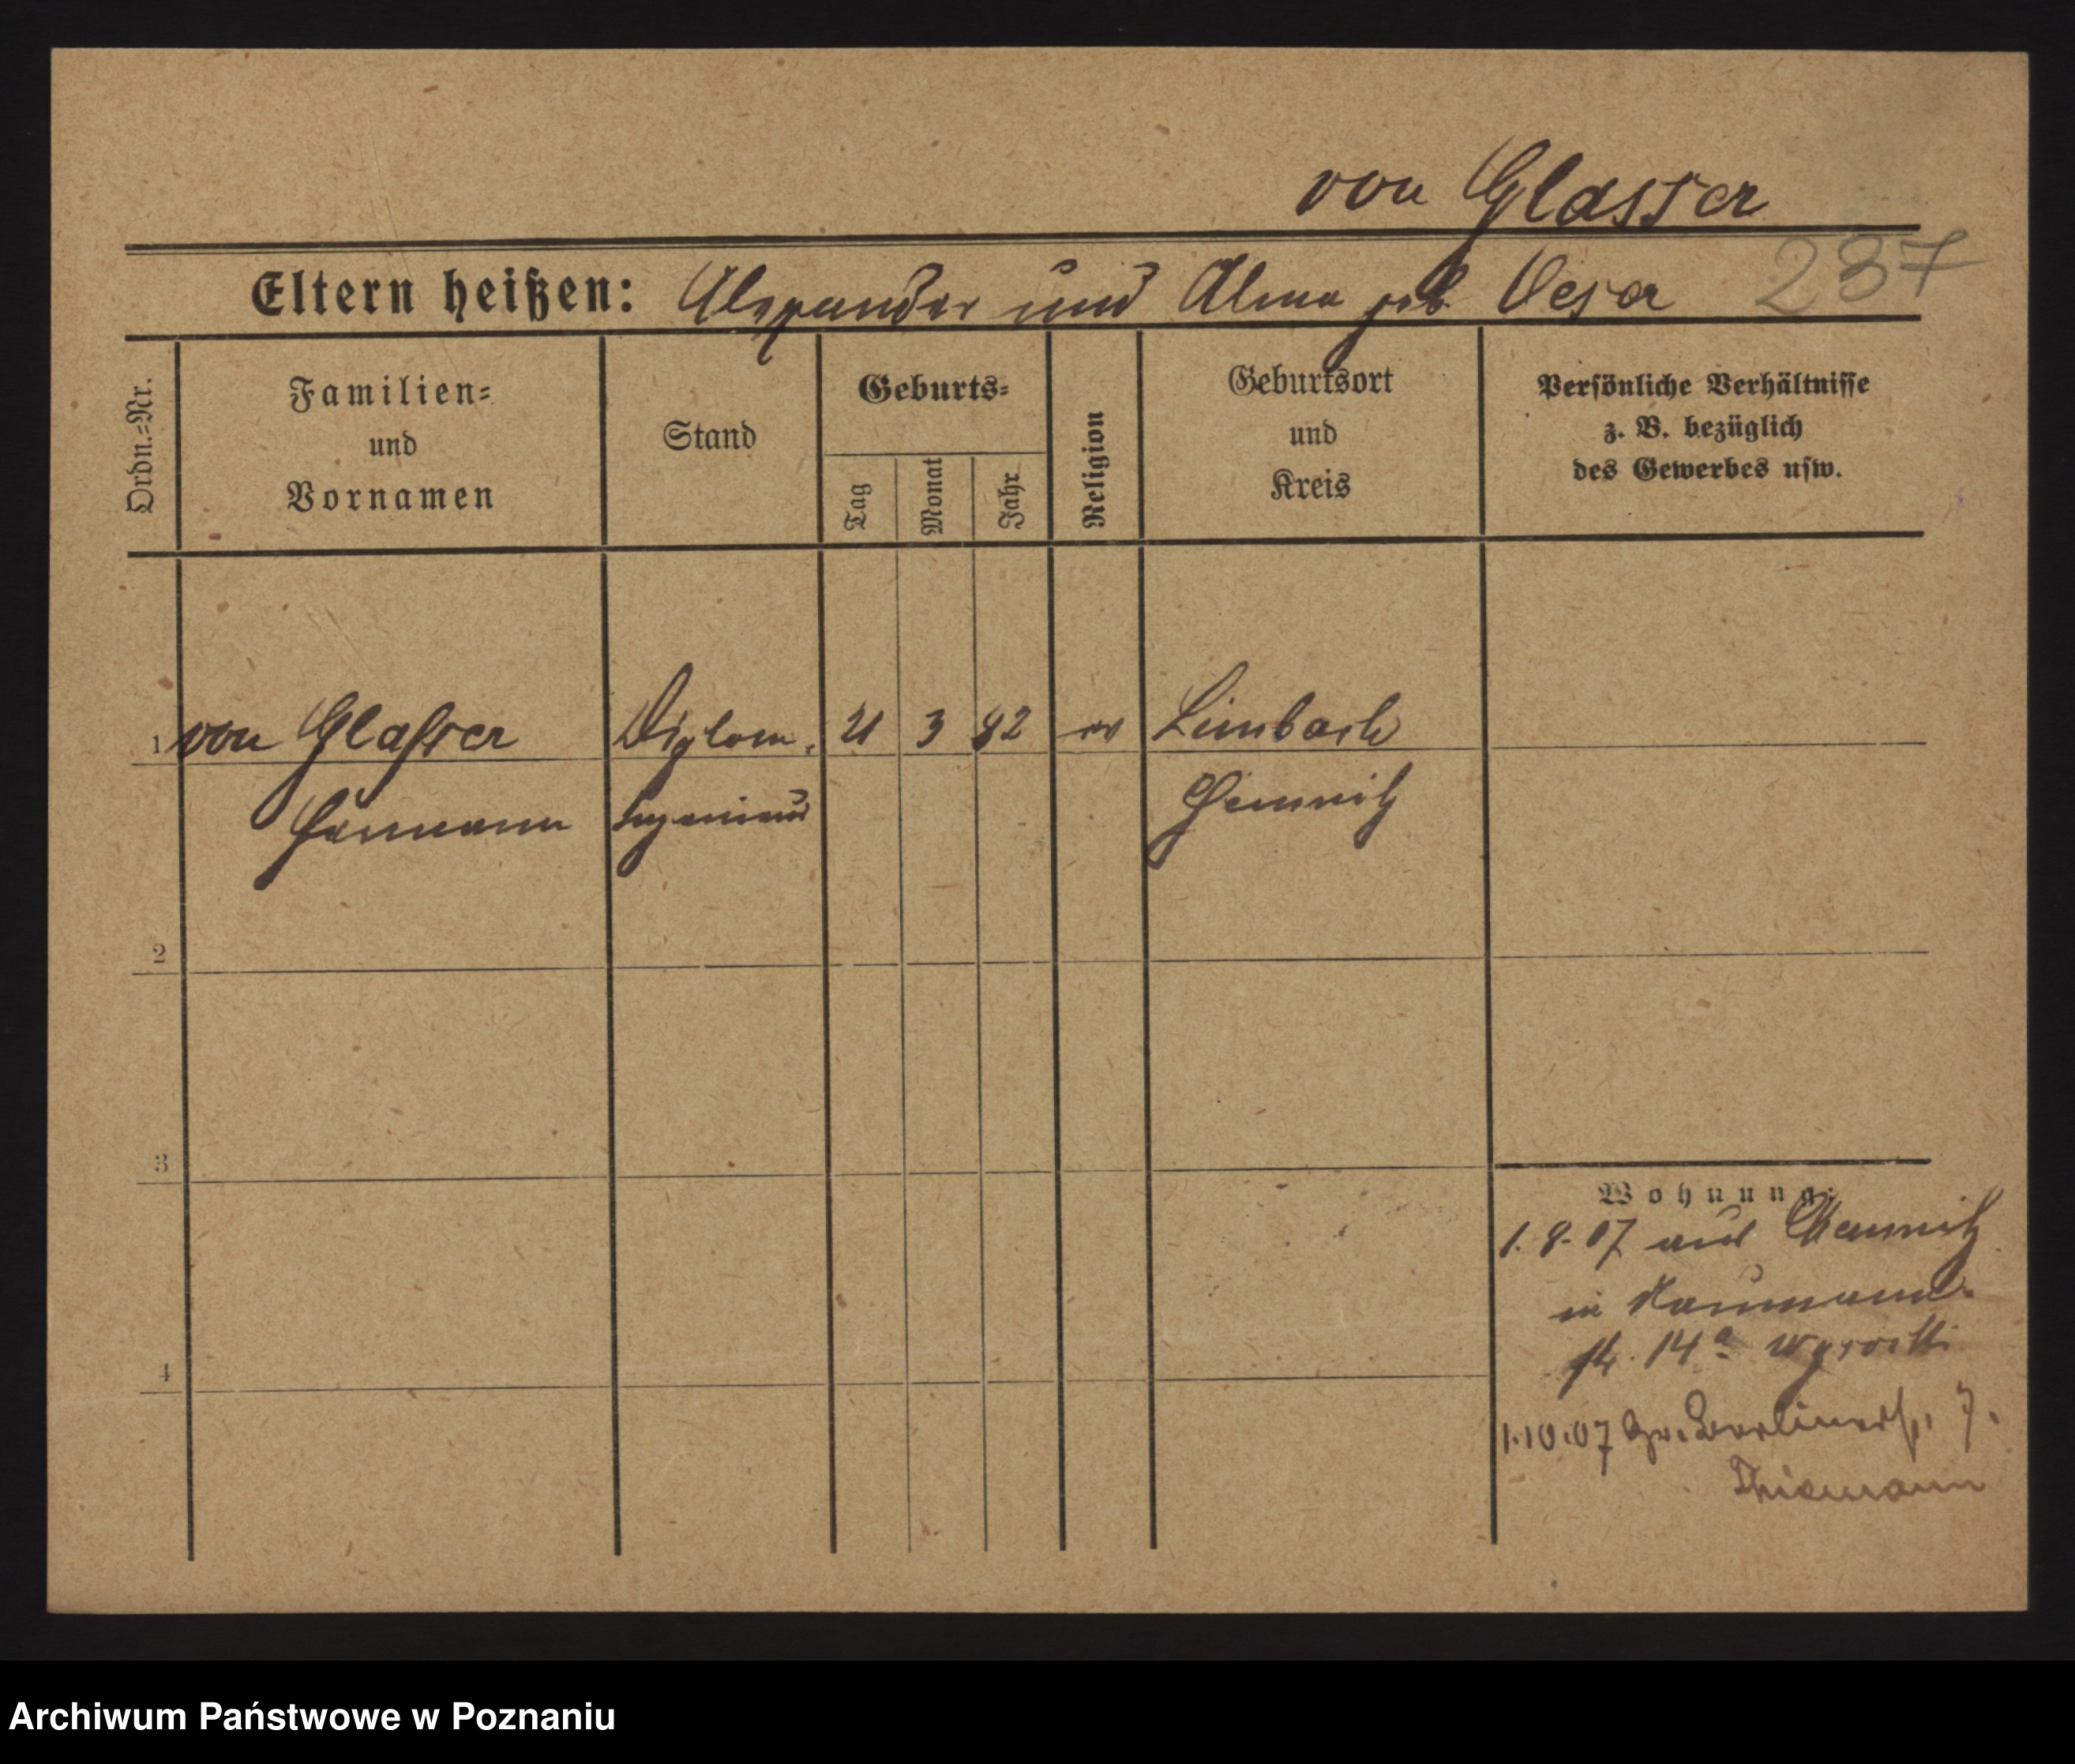 von Glasser
Eltern heißen: Alexander und Alma geb. Oeser 237
Ordn.=Nr.
Familien=
und
Vornamen
Stand
Geburts=
Tag
Monat
Jahr
Religion
Geburtsort
und
Kreis
Persönliche Verhältnisse
z. B. bezüglich
des Gewerbes usw.
1 von Glasser Diplom. 21 3 82 ev Limbach
Hermann Ingenieur Chemnitz
2
3
4
Wohnung:
1.8.07 aus Chemnitz
in Naumann
str. 14a
1.10.07 Gr. Berlinerstr. 7.
Thiemann
Archiwum Państwowe w Poznaniu